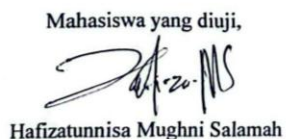 Mahasiswa yang diuji,
Hafizatunnisa Mughni Salamah